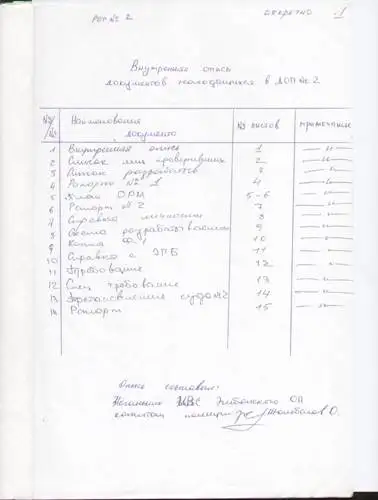 РОП № 2
секретно 1
Внутренняя опись
документов находящихся в ДОП № 2
№/№ Наименования документа № листов примечание
1 Внутренняя опись 1 —"—
2 Список лиц проверивших 2 —"—
3 Листок разработов 3 —"—
4 Рапорт № 1 4 —"—
5 План ОРМ 5-6 —"—
6 Рапорт № 2 7 —"—
7 Справка 8 —"—
8 разрабатываемого 9 —"—
9 Копия Ф 1 10 —"—
10 Справка с ЭПБ 11 —"—
11 Требование 12 —"—
12 Спец требование 13 —"—
13 суда №2 14 —"—
14 Рапорт 15 —"—
Опись составил:
Начальник ОП
капитан полиции О.